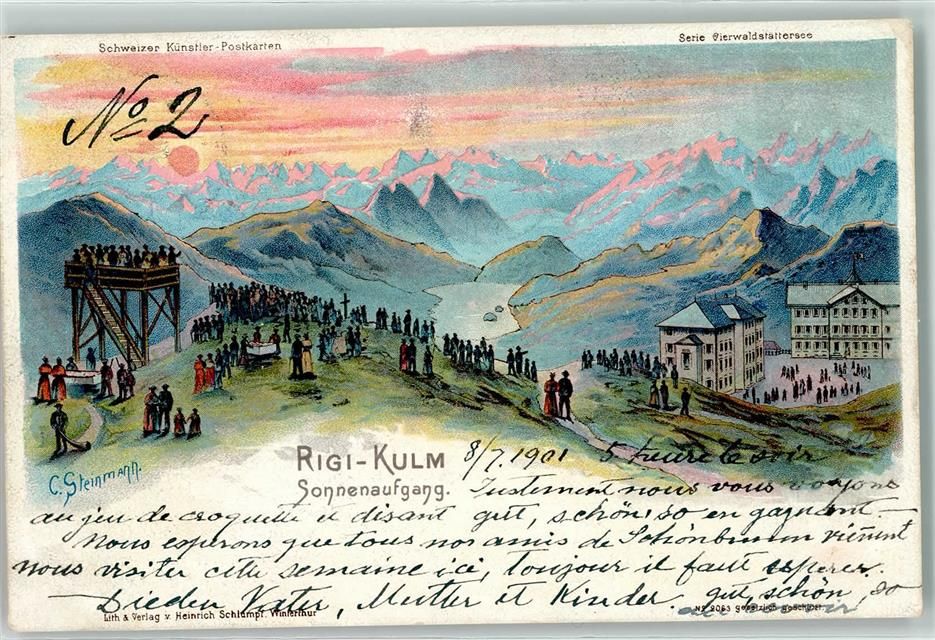 Schweizer Künstler-Postkarten
Serie Vierwaldstättersee
No 2
C. Steinmann.
RIGI-KULM
Sonnenaufgang.
8/7.1901 5 heure le soir
Justement nous vous voyons
au jeu de croquette et disant gut, schön, so en gagnant —
Nous esperons que tous nos amis de Schönbrunn vienent
nous visiter cette semaine ici, toujour il faut esperer.
Vater, Mutter et Kinder. gut, schön, so
au revoir
Lith & Verlag v. Heinrich Schlumpf. Winterthur
No 2063 gesetzlich geschützt.